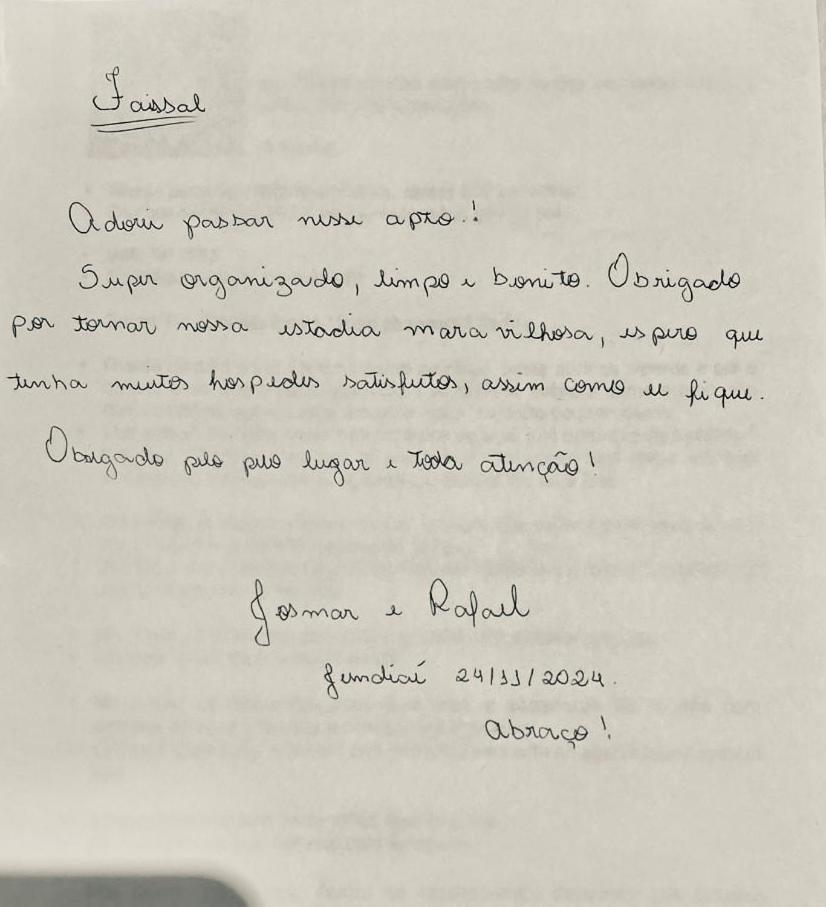 Faissal
Adorei passar nesse apto.!
Super organizado, limpo e bonito. Obrigado
por tornar nossa estadia maravilhosa, espero que
tenha muitos hospedes satisfeitos, assim como eu fique.
Obrigado pelo lugar e toda atenção!
Josmar e Rafael
Jundiaí 24/11/2024.
Abraço!